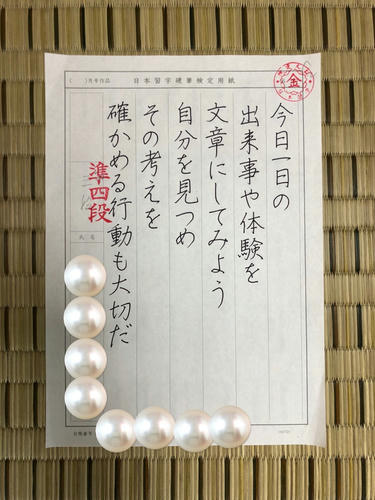 ( )月号作品 日本習字硬筆検定用紙
金
今日一日の
出来事や体験を
文章にしてみよう
自分を見つめ
その考えを
確かめる行動も大切だ
準四段
氏名